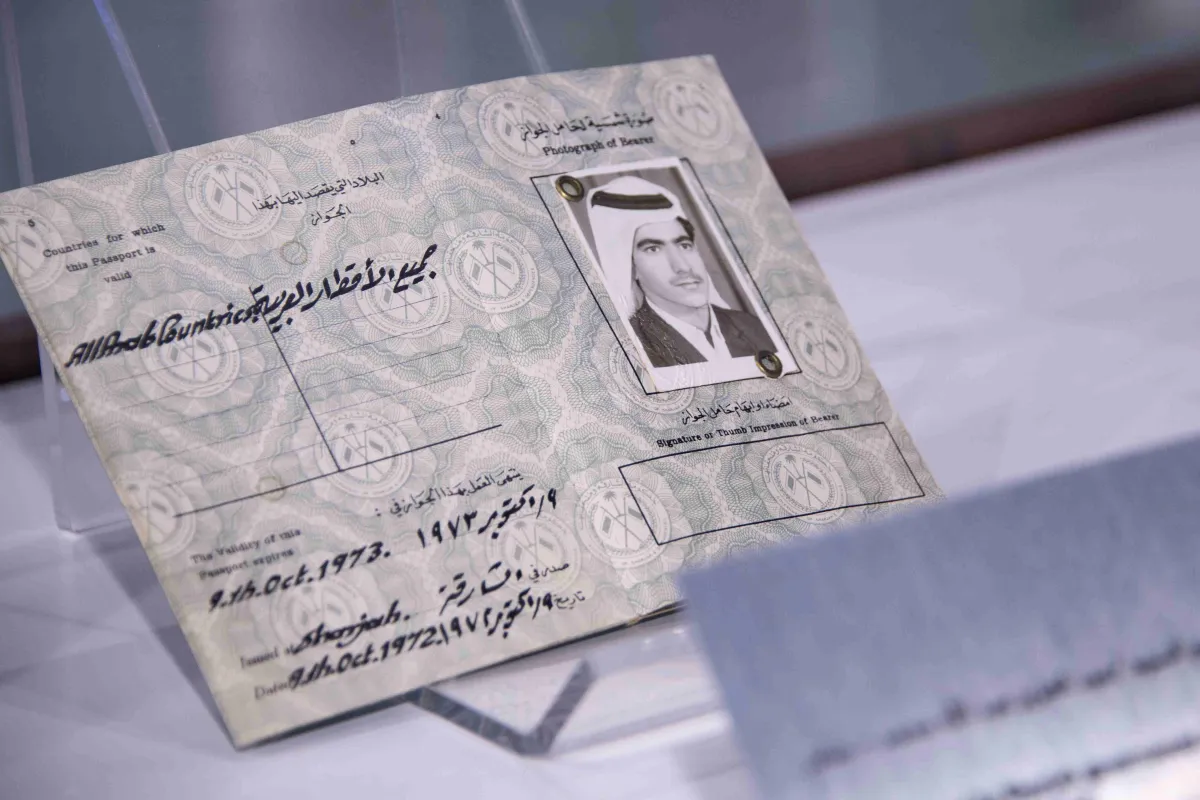 البلاد التي يقصد اليها بهذا
الجواز
Countries for which
this Passport is
valid
جميع الأقطار العربية
All Arab Countries.
ينتهى العمل بهذا الجواز في :
The Validity of this
Passport expires
٩/اكتوبر ١٩٧٣
9.th.Oct.1973.
صدر في الشارقة
Issued at Sharjah.
تاريخ ٩/اكتوبر ١٩٧٢
Dated 9.th.Oct.1972.
صورة شمسية لحامل الجواز
Photograph of Bearer
امضاء او ابهام حامل الجواز
Signature or Thumb Impression of Bearer